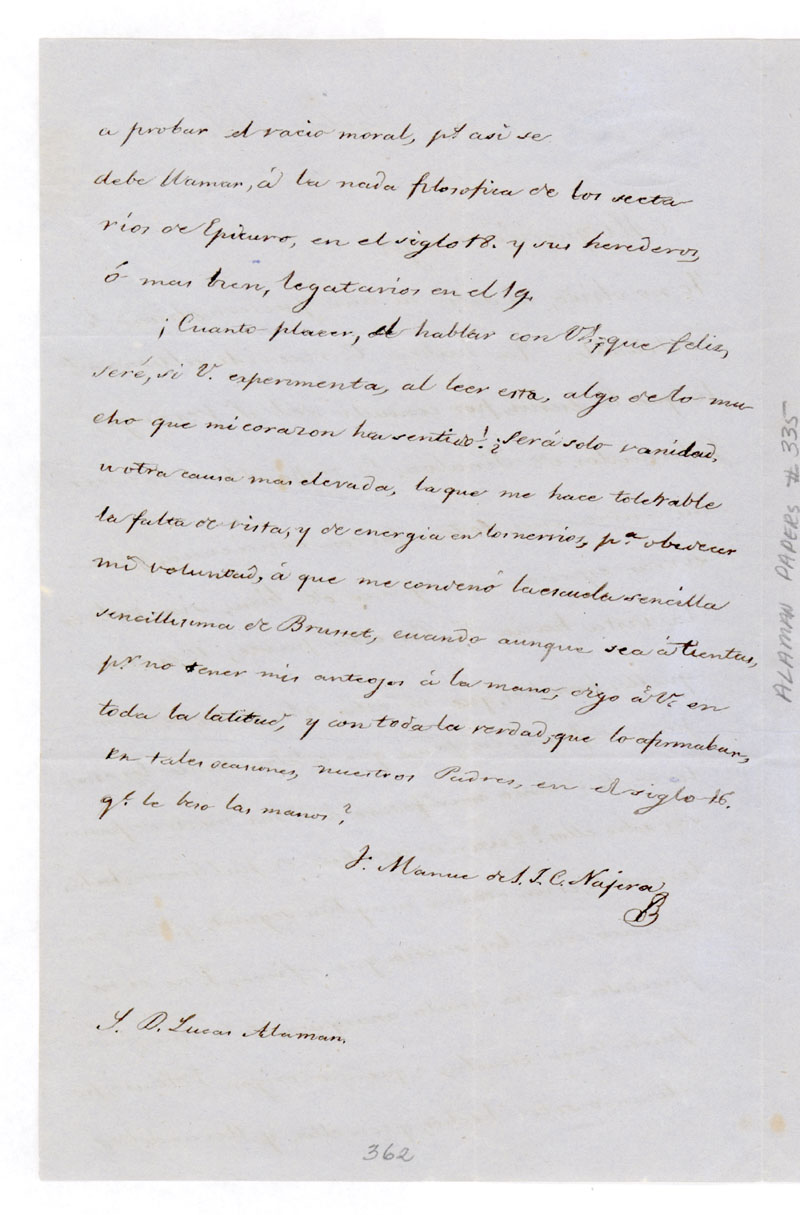 a probar el vacio moral, pr. asi se
debe llamar, á la nada filosofica de los secta
rios de Epicuro, en el siglo 18. y sus herederos,
ó mas bien, legatarios en el 19.
¡Cuanto placer, el hablar con Vd., ¡que feliz,
seré, si V. experimenta, al leer esta, algo de lo mu-
cho que mi corazon ha sentido! ¿Será solo vanidad,
u otra causa mas elevada, la que me hace tolerable
la falta de vista, y de energia en los nervios, pa. obedecer
mi voluntad, á que me condenó la escuela sencilla
sencillisima de Brusset, cuando aunque sea á tientas,
pr. no tener mis anteojos á la mano, digo á V. en
toda la latitud, y con toda la verdad, que lo afirmaban,
en tales ocasiones, nuestros Padres, en el siglo 16.
qe. le beso las manos?
F. Manue de S. J. C. Najera
S. D. Lucas Alaman.
362
ALAMAN PAPERS # 335